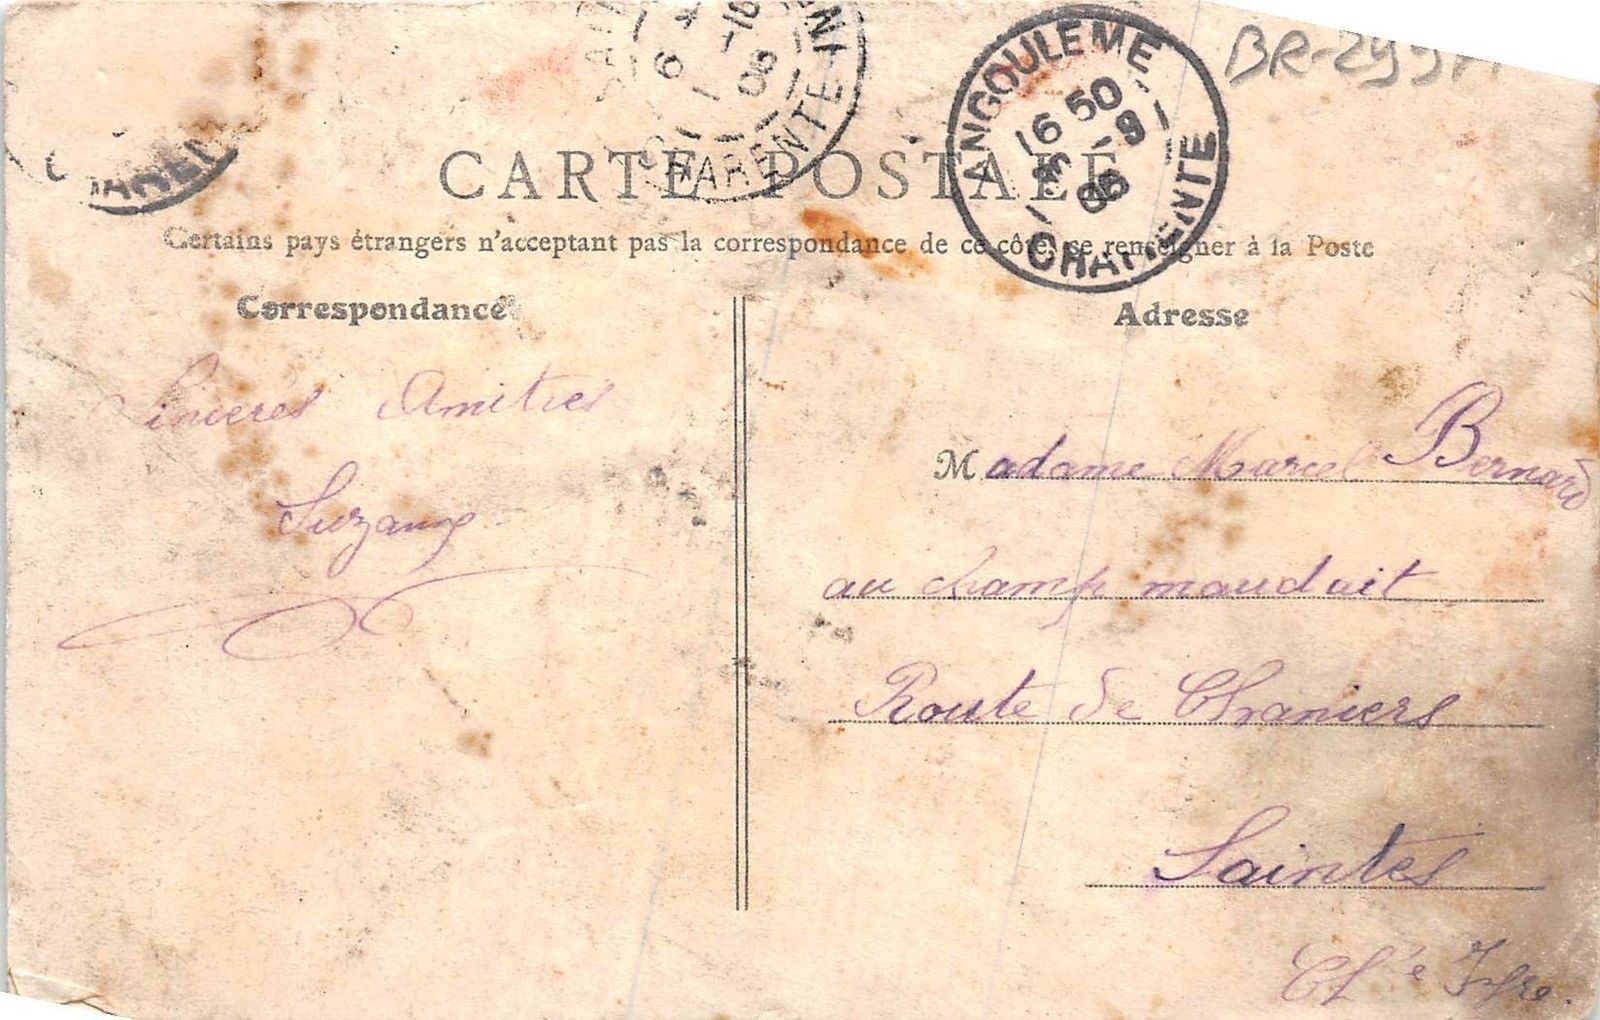 BR-2997A
ANGOULEME
16 50
30 -9
06
CHARENTE
6
-10
06
CHARENTE INF
CARTE POSTALE
Certains pays étrangers n'acceptant pas la correspondance de ce côté, se renseigner à la Poste
Correspondance
Sincères Amitiés
Suzanne
Adresse
Madame Marcel Bernard
au champ mauduit
Route de Chaniers
Saintes
Ch^te Infre.